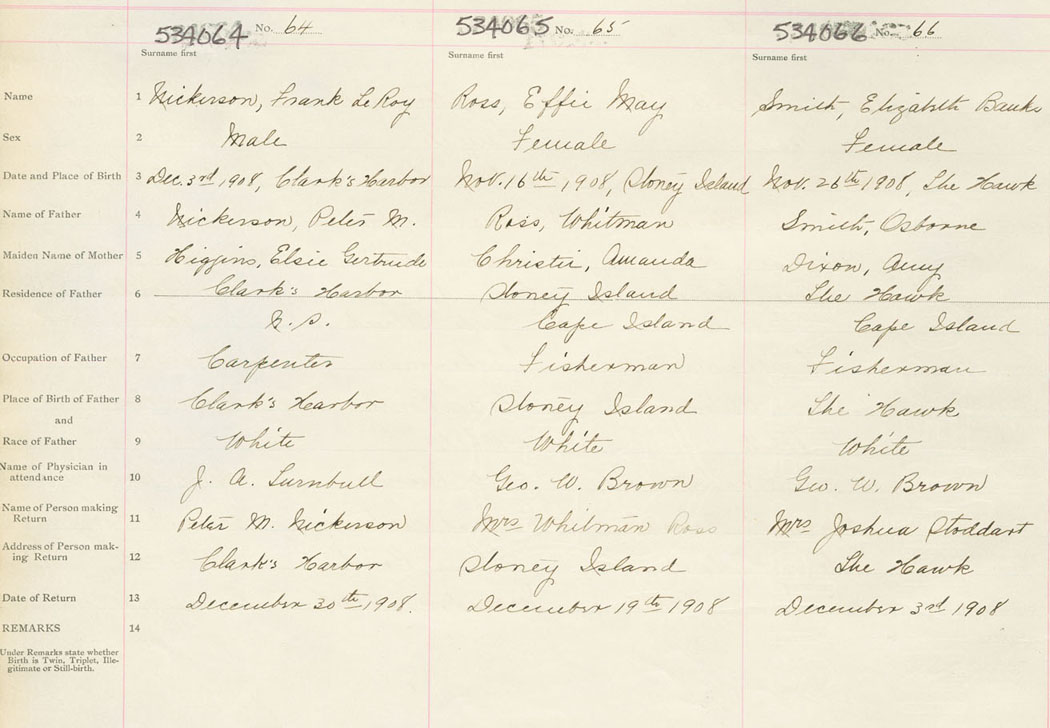 534064 No. 64 534065 No. 65 534066 No. 66
Surname first Surname first Surname first
Name 1 Nickerson, Frank LeRoy Ross, Effie May Smith, Elizabeth Banks
Sex 2 Male Female Female
Date and Place of Birth 3 Dec. 3rd 1908, Clark's Harbor Nov. 16th 1908, Stoney Island Nov. 26th 1908, The Hawk
Name of Father 4 Nickerson, Peter M. Ross, Whitman Smith, Osborne
Maiden Name of Mother 5 Higgins, Elsie Gertrude Christie, Amanda Dixon, Amy
Residence of Father 6 Clark's Harbor Stoney Island The Hawk
N.S. Cape Island Cape Island
Occupation of Father 7 Carpenter Fisherman Fisherman
Place of Birth of Father 8 Clark's Harbor Stoney Island The Hawk
and
Race of Father 9 White White White
Name of Physician in
attendance 10 J. A. Turnbull Geo. W. Brown Geo. W. Brown
Name of Person making
Return 11 Peter M. Nickerson Mrs Whitman Ross Mrs Joshua Stoddart
Address of Person mak-
ing Return 12 Clark's Harbor Stoney Island The Hawk
Date of Return 13 December 30th 1908. December 19th 1908 December 3rd 1908
REMARKS 14
Under Remarks state whether
Birth is Twin, Triplet, Ille-
gitimate or Still-birth.